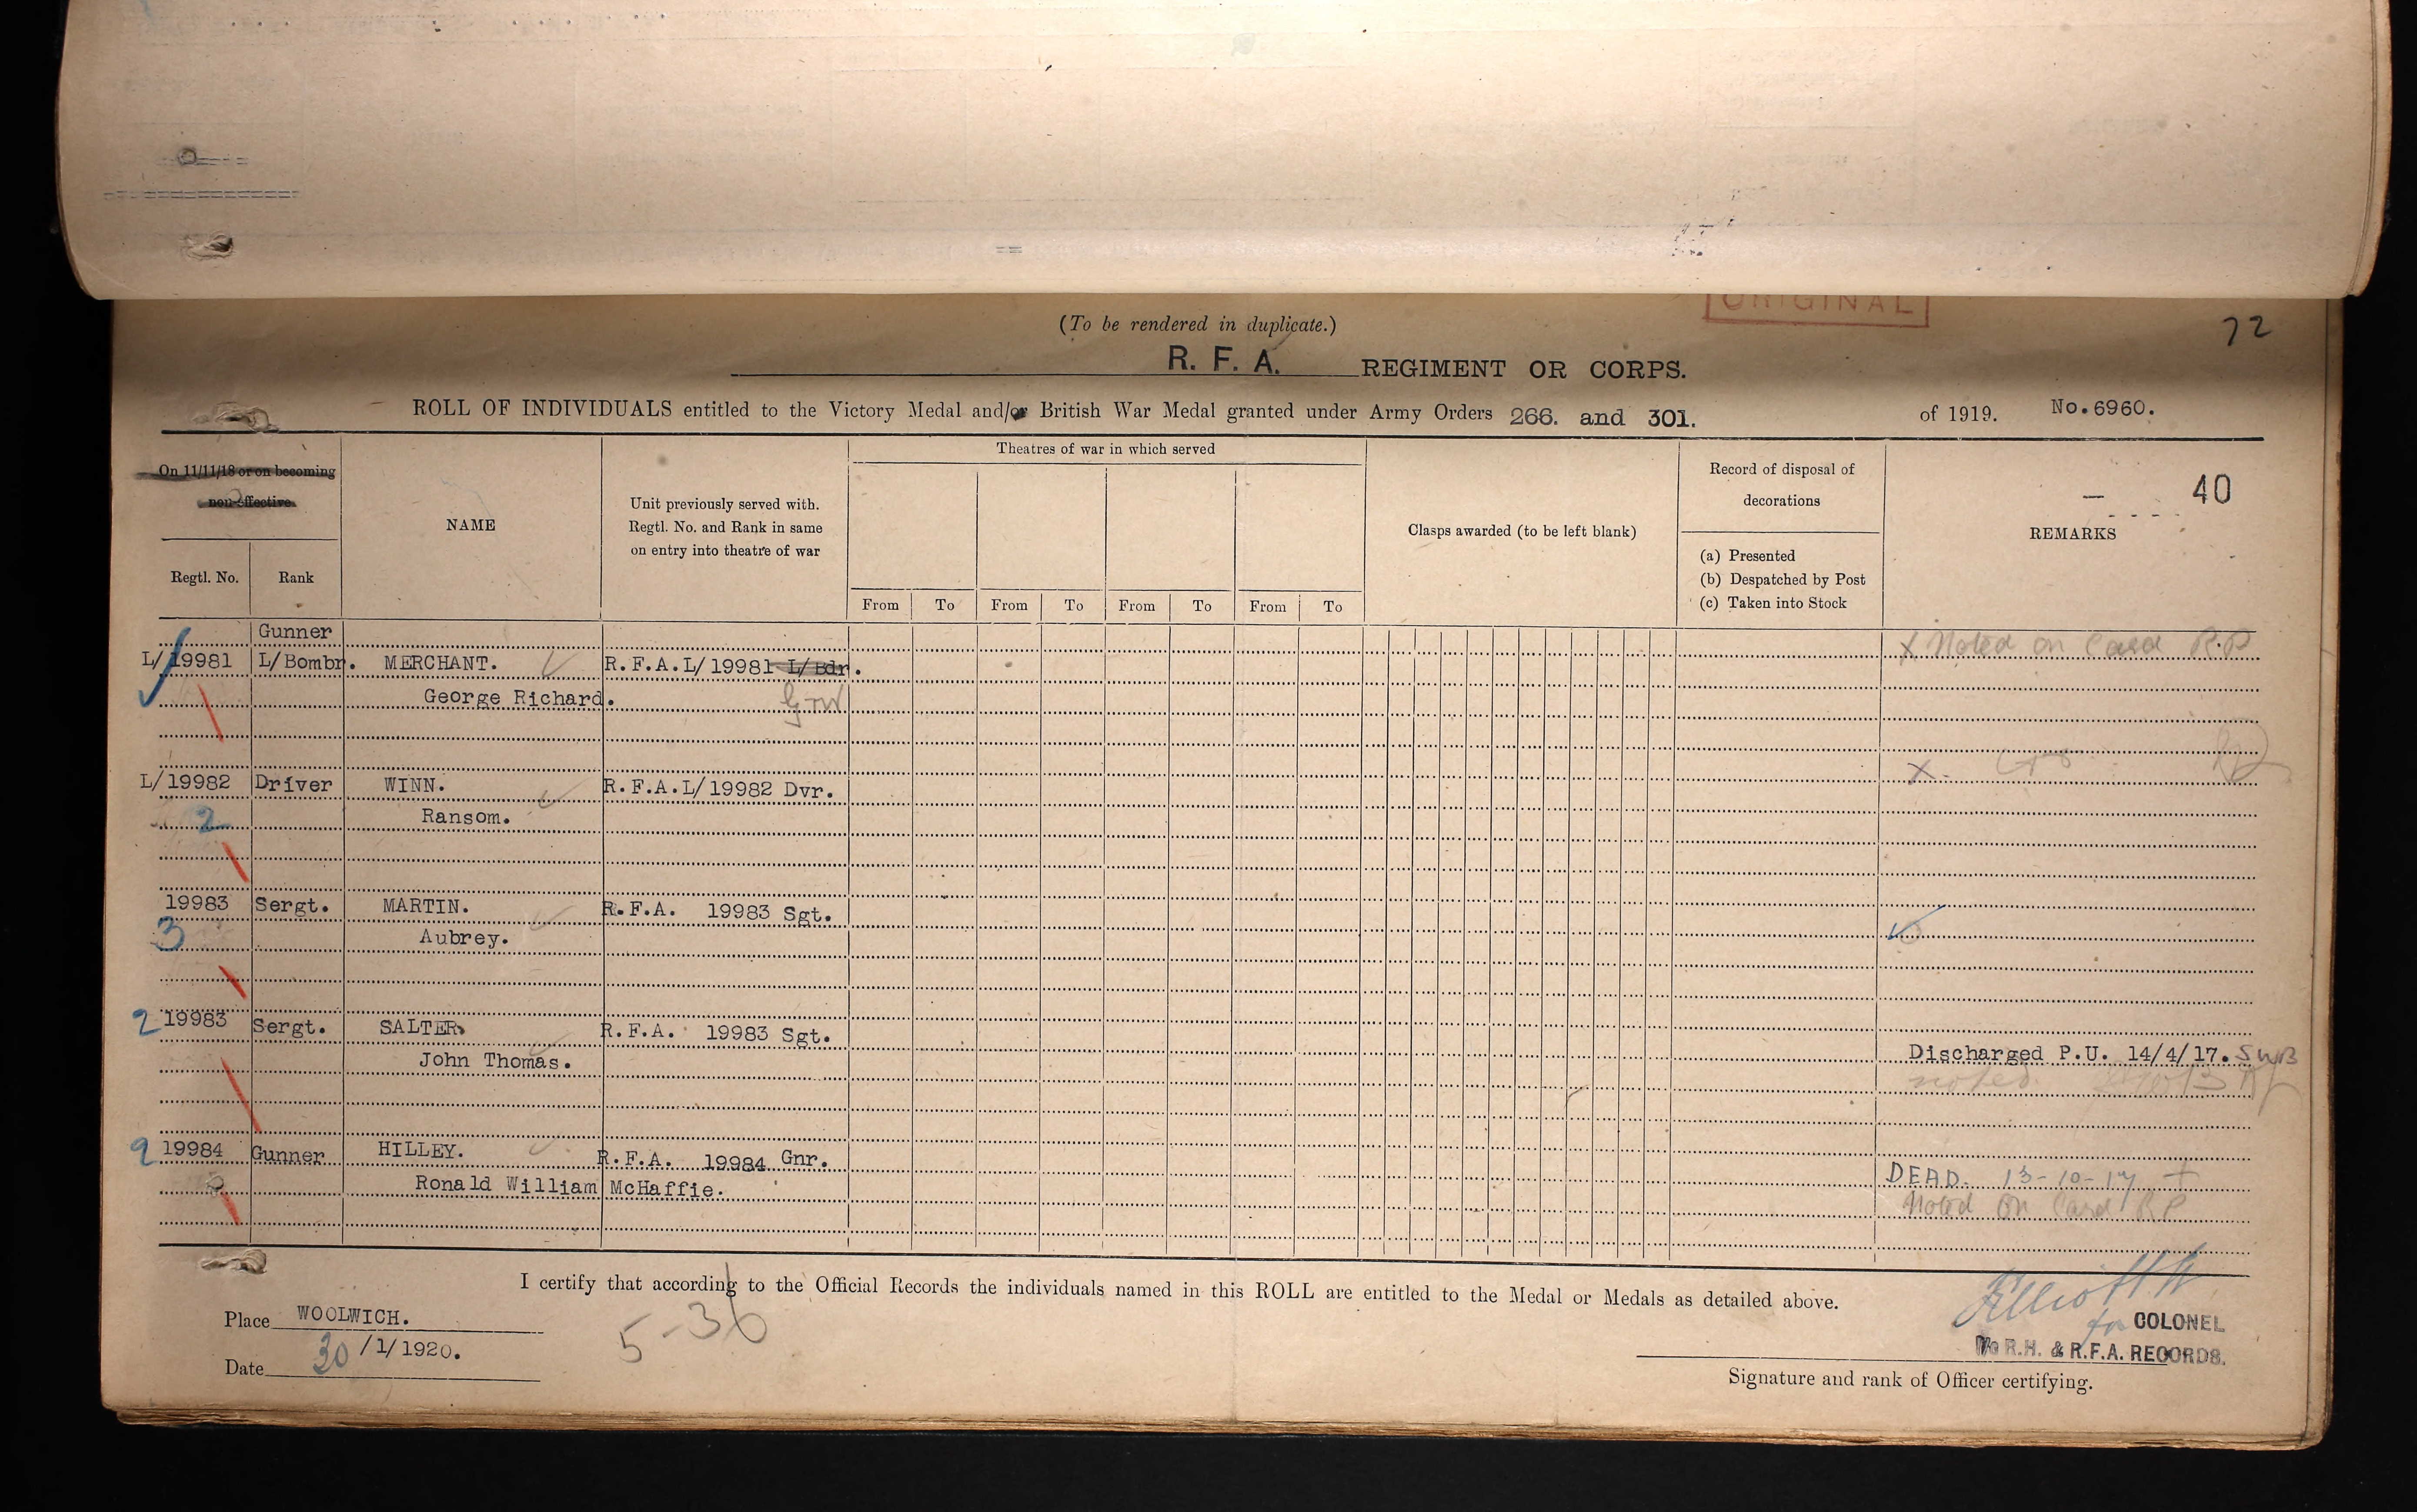 ORIGINAL
72
(To be rendered in duplicate.)
R. F. A. REGIMENT OR CORPS.
ROLL OF INDIVIDUALS entitled to the Victory Medal and/or British War Medal granted under Army Orders 266. and 301. of 1919. No.6960.
On 11/11/18 or on becoming
non-effective.
Regtl. No.
Rank
NAME
Unit previously served with.
Regtl. No. and Rank in same
on entry into theatre of war
Theatres of war in which served
From To From To From To From To
Clasps awarded (to be left blank)
Record of disposal of
decorations
(a) Presented
(b) Despatched by Post
(c) Taken into Stock
40
REMARKS
Gunner
L/19981 L/Bombr. MERCHANT. R.F.A.L/19981 L/Bdr. X Noted on Card R.P
George Richard. Gnr
L/19982 Driver WINN. R.F.A.L/19982 Dvr. X
2 Ransom.
19983 Sergt. MARTIN. R.F.A. 19983 Sgt.
3 Aubrey.
2 19983 Sergt. SALTER. R.F.A. 19983 Sgt.
John Thomas. Discharged P.U. 14/4/17. SWB
noted
2 19984 Gunner HILLEY. R.F.A. 19984 Gnr.
Ronald William McHaffie. DEAD. 13-10-17 +
Noted on Card RP
I certify that according to the Official Records the individuals named in this ROLL are entitled to the Medal or Medals as detailed above.
Place WOOLWICH.
Date 30/1/1920.
5-36
Elliott
for COLONEL
i/c R.H. & R.F.A. RECORDS.
Signature and rank of Officer certifying.